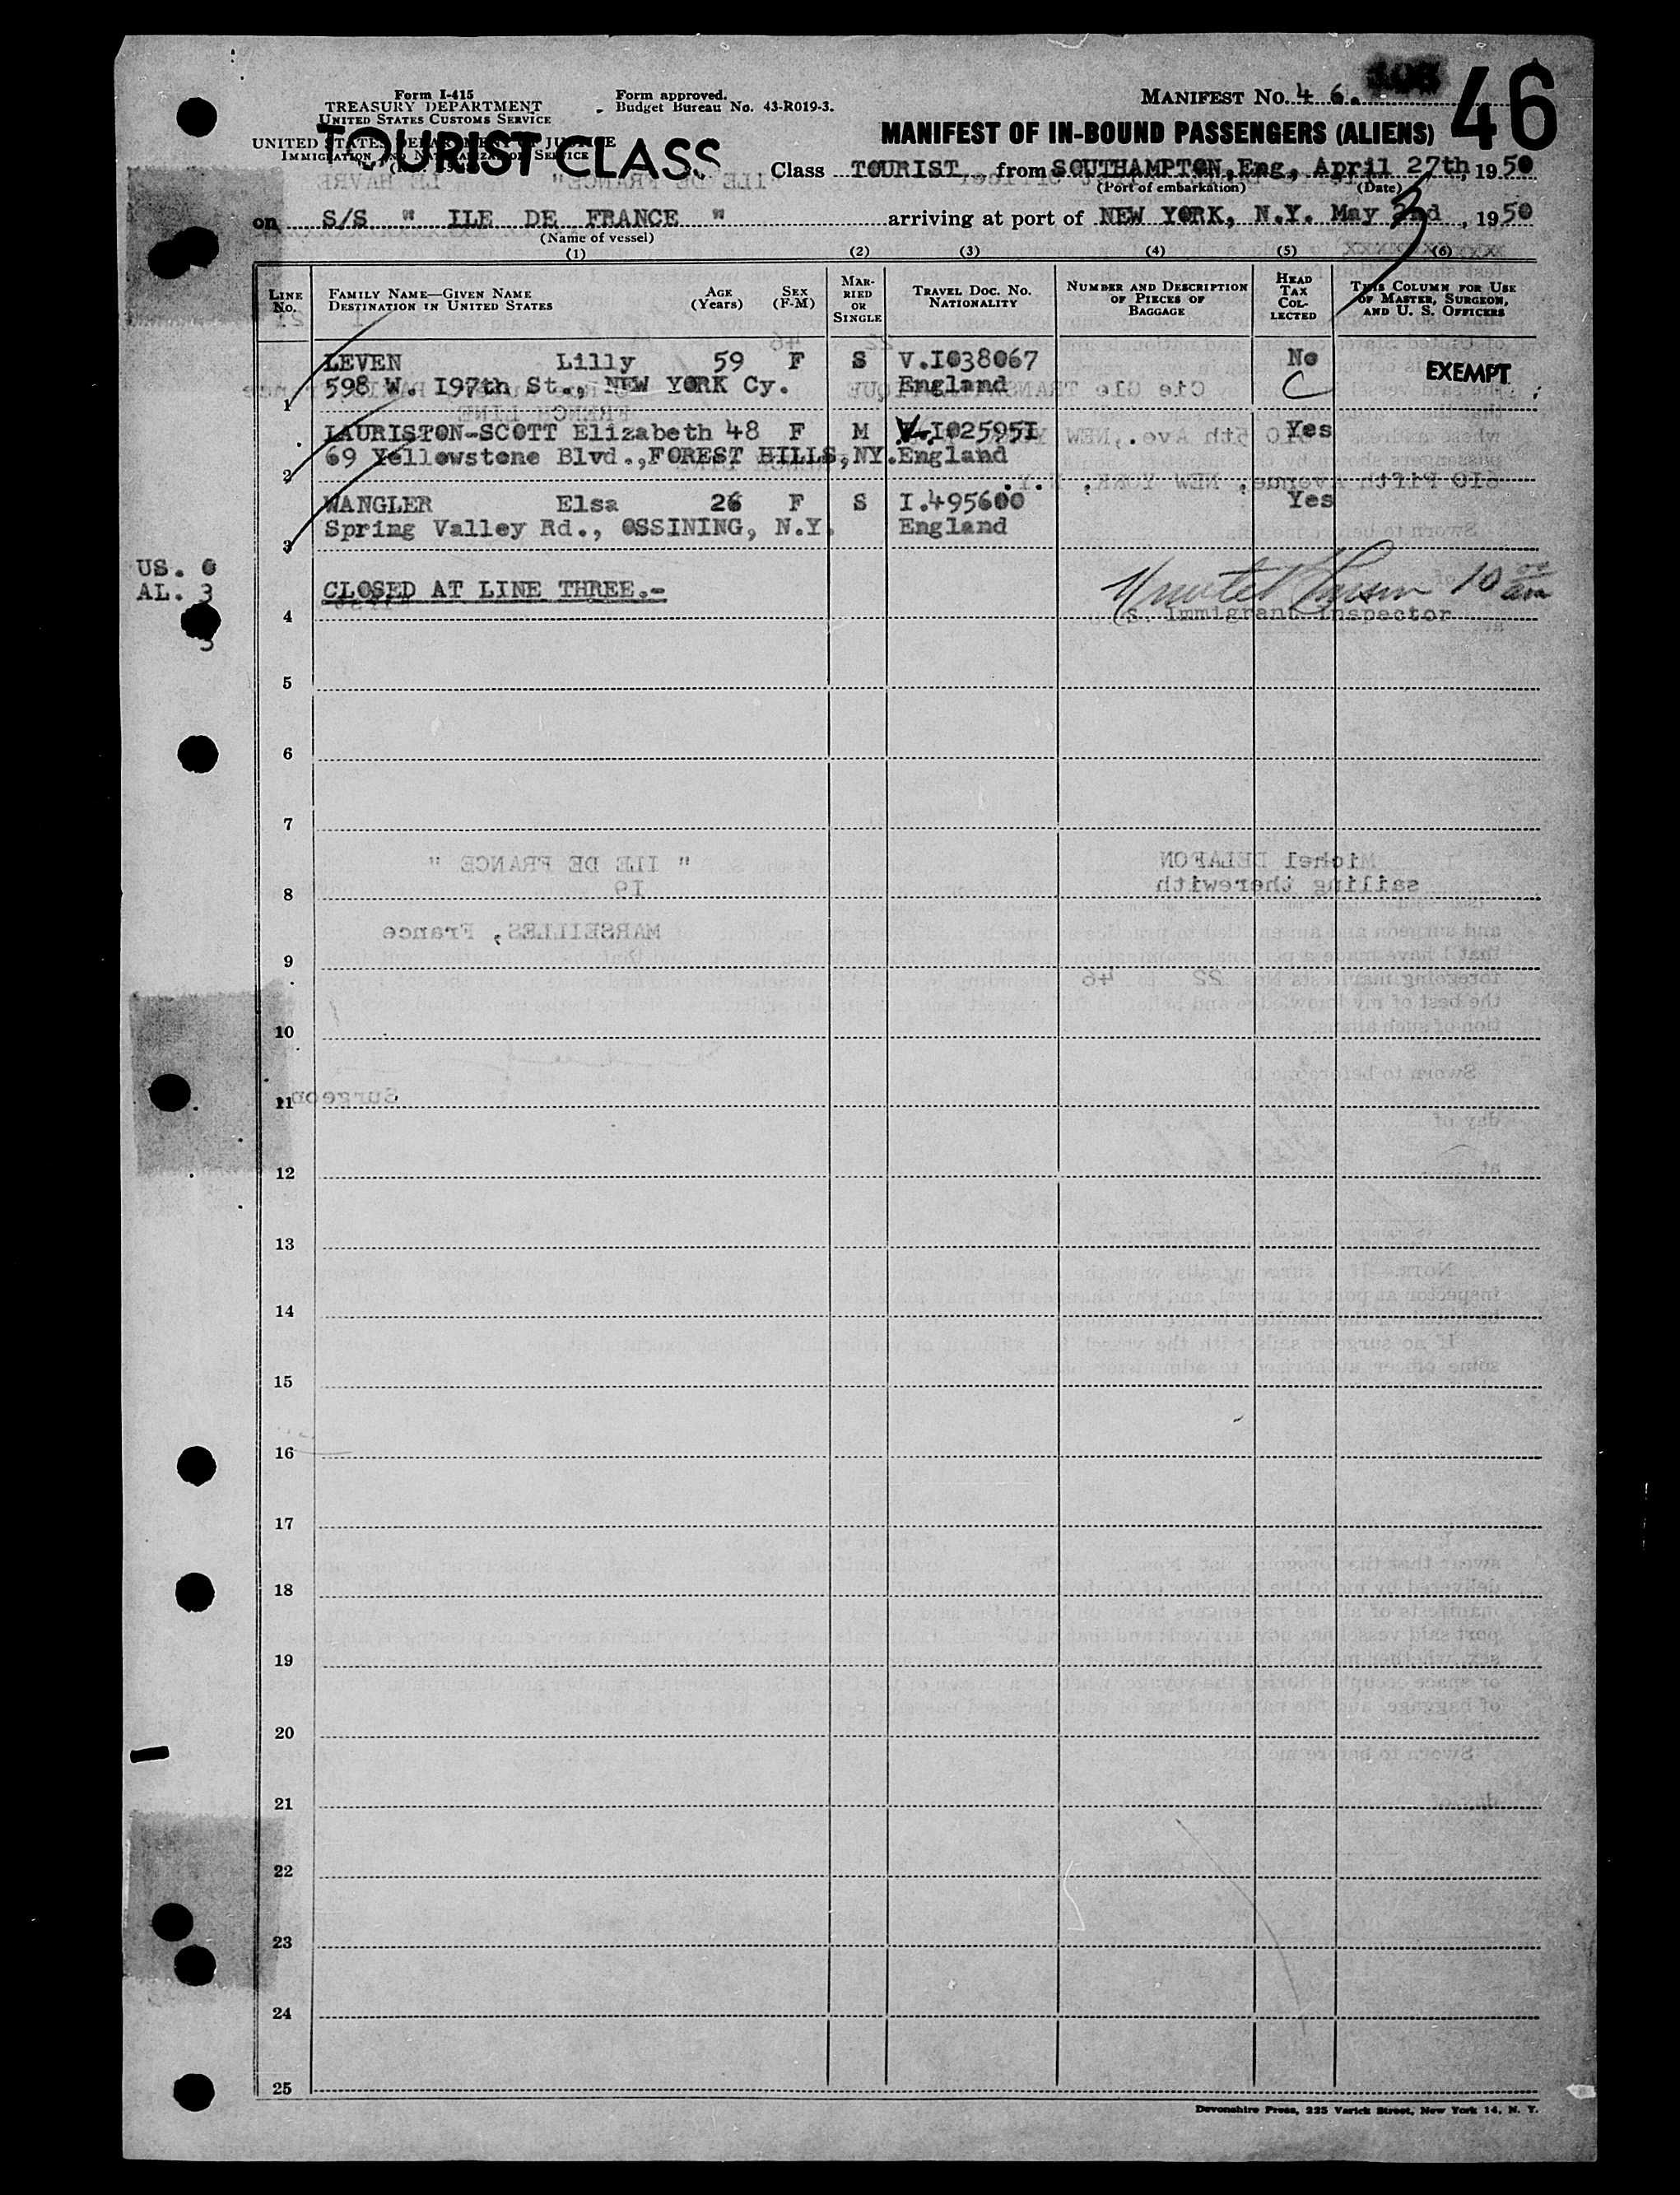 Form I-415
TREASURY DEPARTMENT
UNITED STATES CUSTOMS SERVICE
UNITED STATES DEPARTMENT OF JUSTICE
IMMIGRATION AND NATURALIZATION SERVICE
TOURIST CLASS
Form approved.
Budget Bureau No. 43-R019-3.
MANIFEST No. 46. 46
MANIFEST OF IN-BOUND PASSENGERS (ALIENS)
Class TOURIST, from SOUTHAMPTON, Eng, April 27th, 1950
(Port of embarkation) (Date)
on S/S " ILE DE FRANCE " arriving at port of NEW YORK, N.Y. May 2nd 3, 1950
(Name of vessel)
(1) (2) (3) (4) (5) (6)
LINE No. FAMILY NAME—GIVEN NAME DESTINATION IN UNITED STATES AGE (Years) SEX (F-M) MARRIED OR SINGLE TRAVEL DOC. NO. NATIONALITY NUMBER AND DESCRIPTION OF PIECES OF BAGGAGE HEAD TAX COLLECTED THIS COLUMN FOR USE OF MASTER, SURGEON, AND U. S. OFFICERS
LEVEN Lilly 59 F S V.I038067 No EXEMPT
1 598 W. I97th St., NEW YORK Cy. England C
LAURISTON-SCOTT Elizabeth 48 F M V.I02595I Yes
2 69 Yellowstone Blvd.,FOREST HILLS,NY. England
WANGLER Elsa 26 F S I.495600 Yes
3 Spring Valley Rd., OSSINING, N.Y. England
US. 0
AL. 3
3
CLOSED AT LINE THREE.- 10 00 am
4 U.S. Immigrant Inspector
5
6
7
8
9
10
11
12
13
14
15
16
17
18
19
20
21
22
23
24
25
Devonshire Press, 225 Varick Street, New York 14, N. Y.